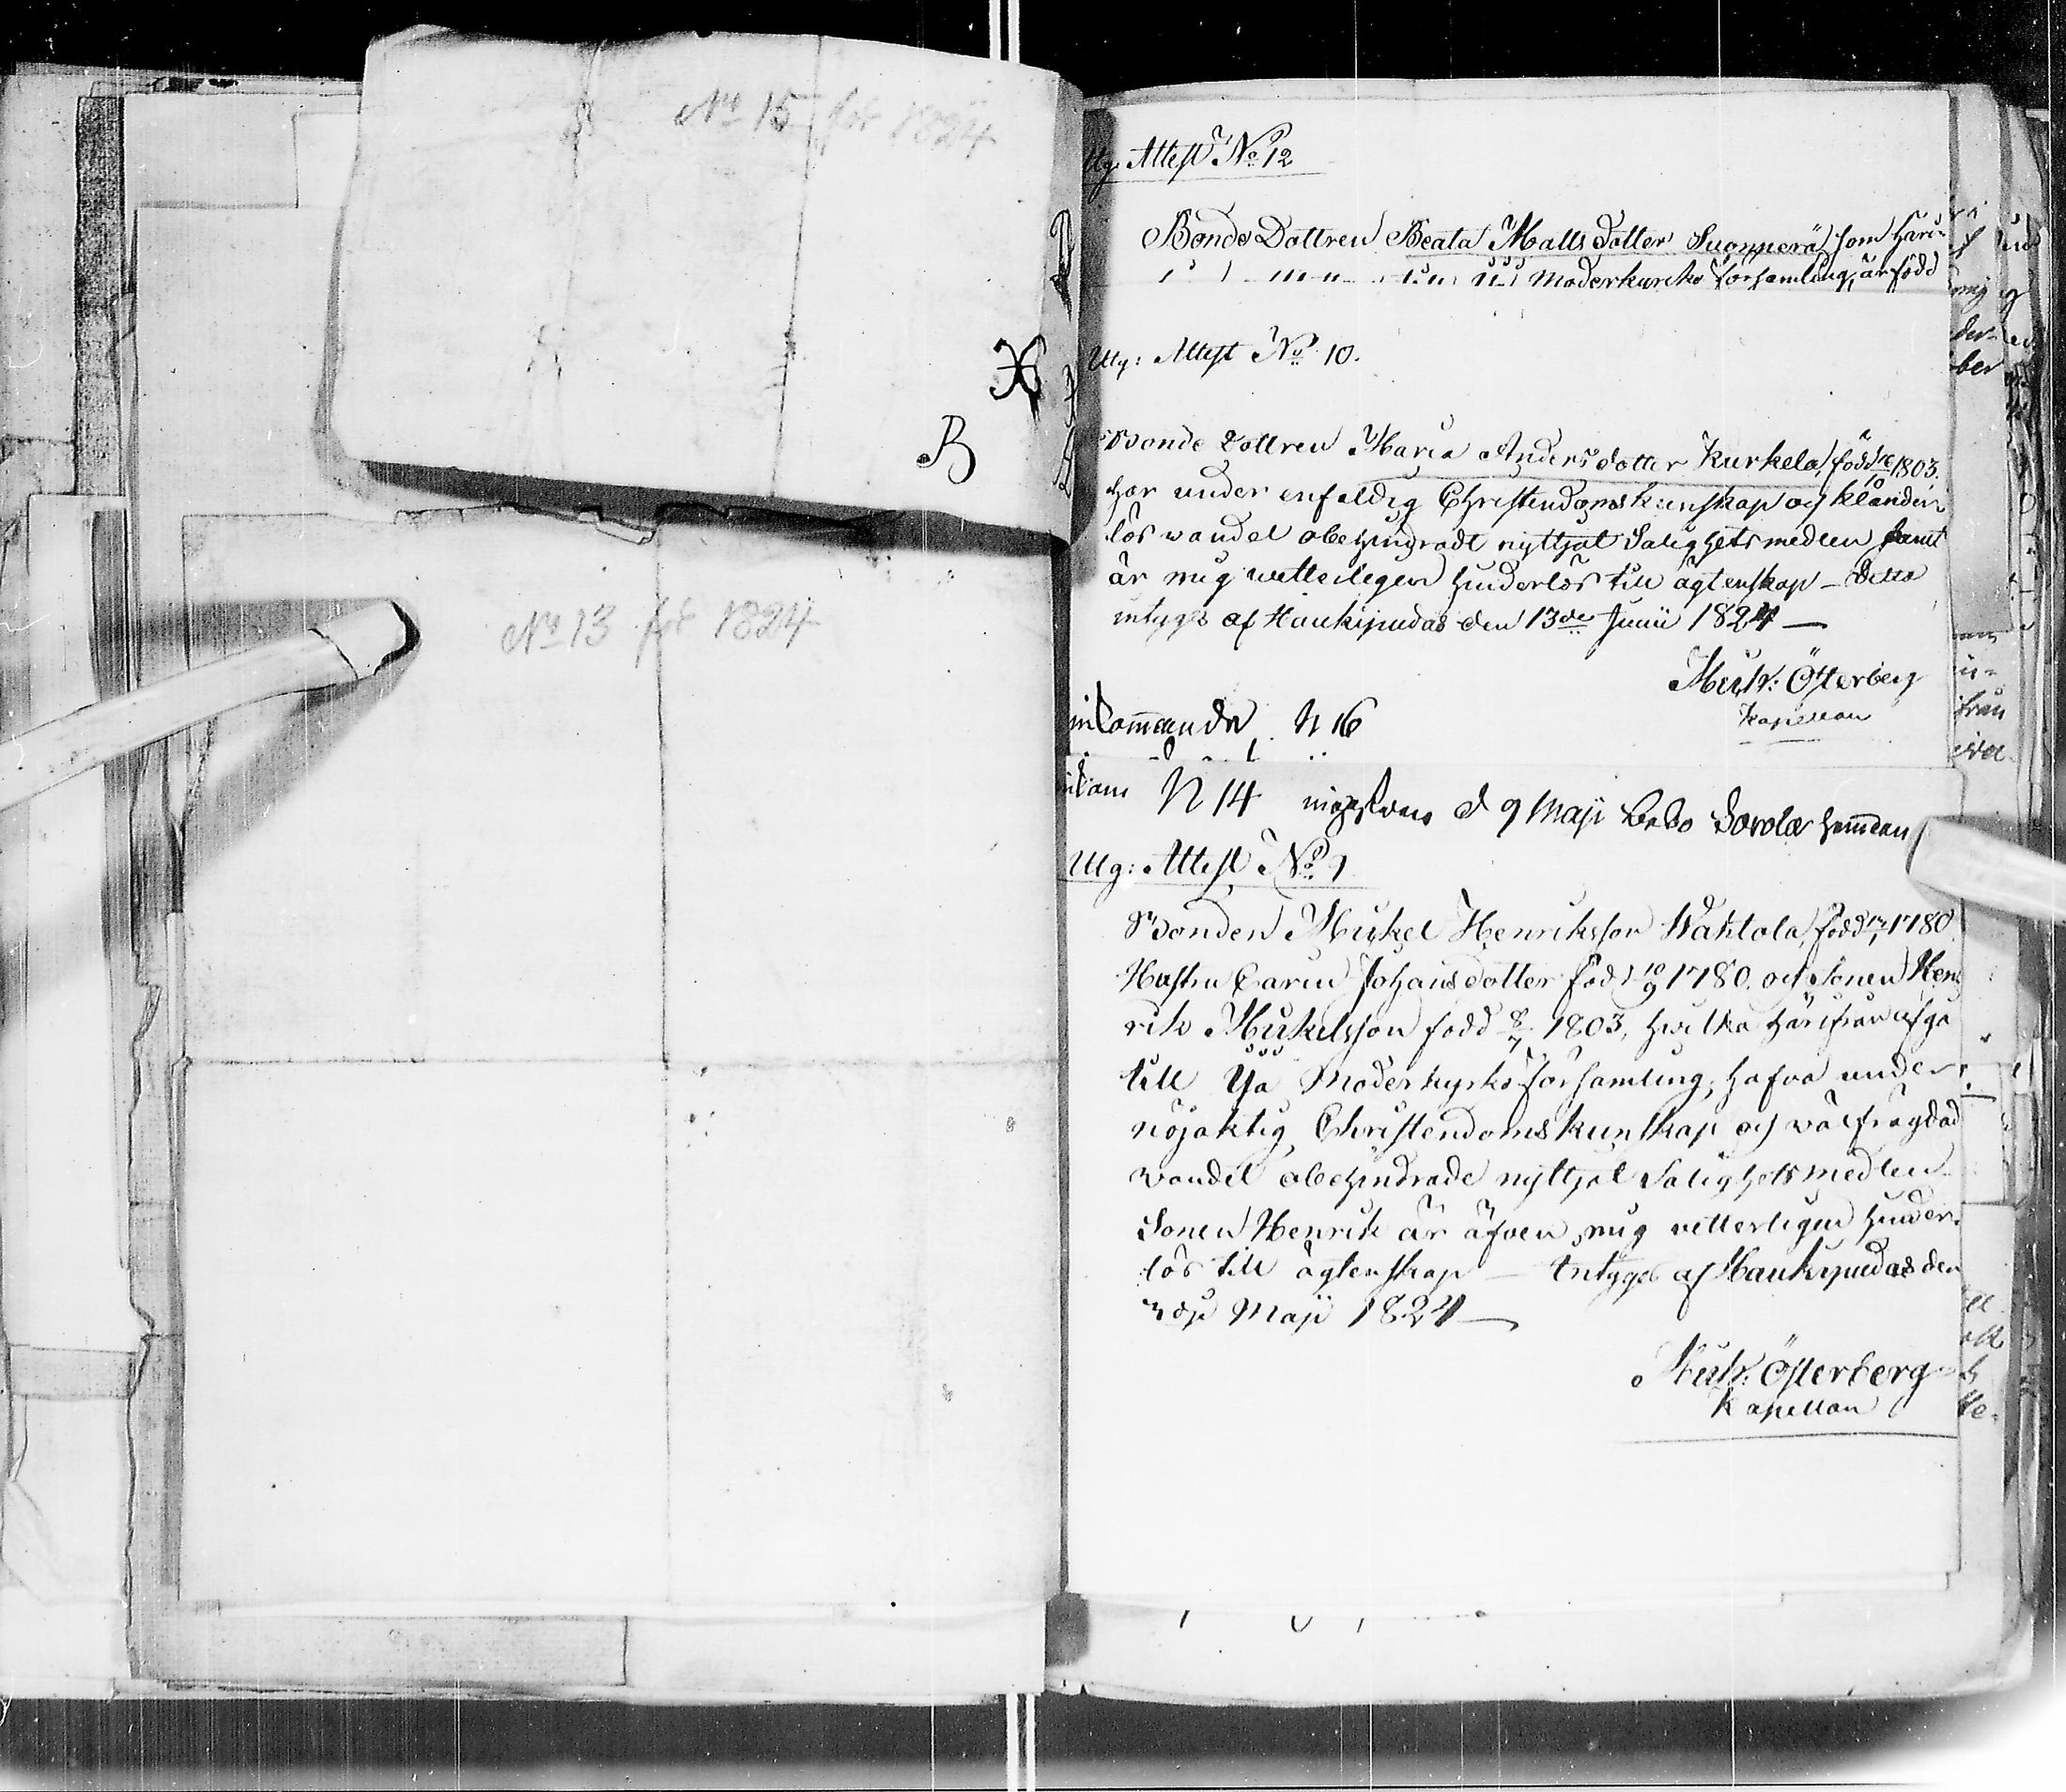 No 15 för 1824
B
No 13 för 1824
Utg: Attest No 12
Bonde Dottren Beata Matts dotter Suonperä som häri-
moderkyrko församling, är född
Utg: Attest No 10.
Bonde Dottren Maria Anders dotter Kurkela, född 1803.
har under enfaldig Christendoms kunskap och klander-
lös wandel obehindradt nyttjat Salighets medlen samt
är mig wetterligen hinderlös till ägtenskap — Detta
intygas af Haukipudas den 13de Junii 1824 —
Mich: Österberg
Kapellan
inkommande N 16
inkom N 14 d 9 Maji
Utg: Attest No 9
Bonden Mickel Henriksson Wahtola, född 1780
Hustru Carin Johans dotter född 10/9 1780. och Sonen Hen
rik Mickelsson född 8/7 1803, hwilka härifrån afgå
till Ijå Moderkyrko församling, hafva under
nöjaktig Christendoms kunskap och wälfrägdad
wandel obehindrade nyttjat Salighets medlen
Sonen Henrik är äfven mig vetterligen hinder-
lös till ägtenskap — Intygas af Haukipudas den
Maji 1824 —
Mich: Österberg
Kapellan